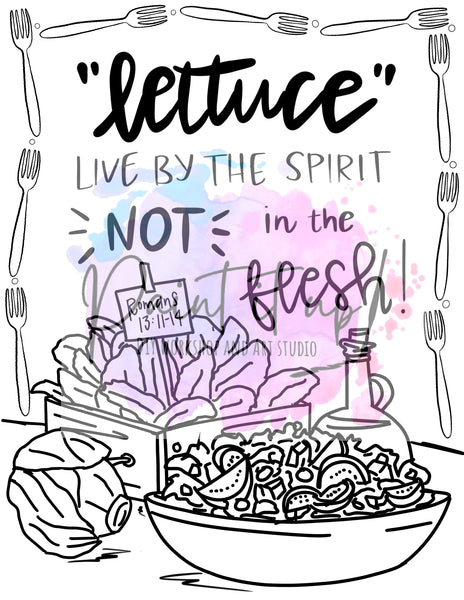 "lettuce"
LIVE BY THE SPIRIT
NOT in the
flesh!
Paint it up!
DIY WORKSHOP AND ART STUDIO
Romans
13:11-14